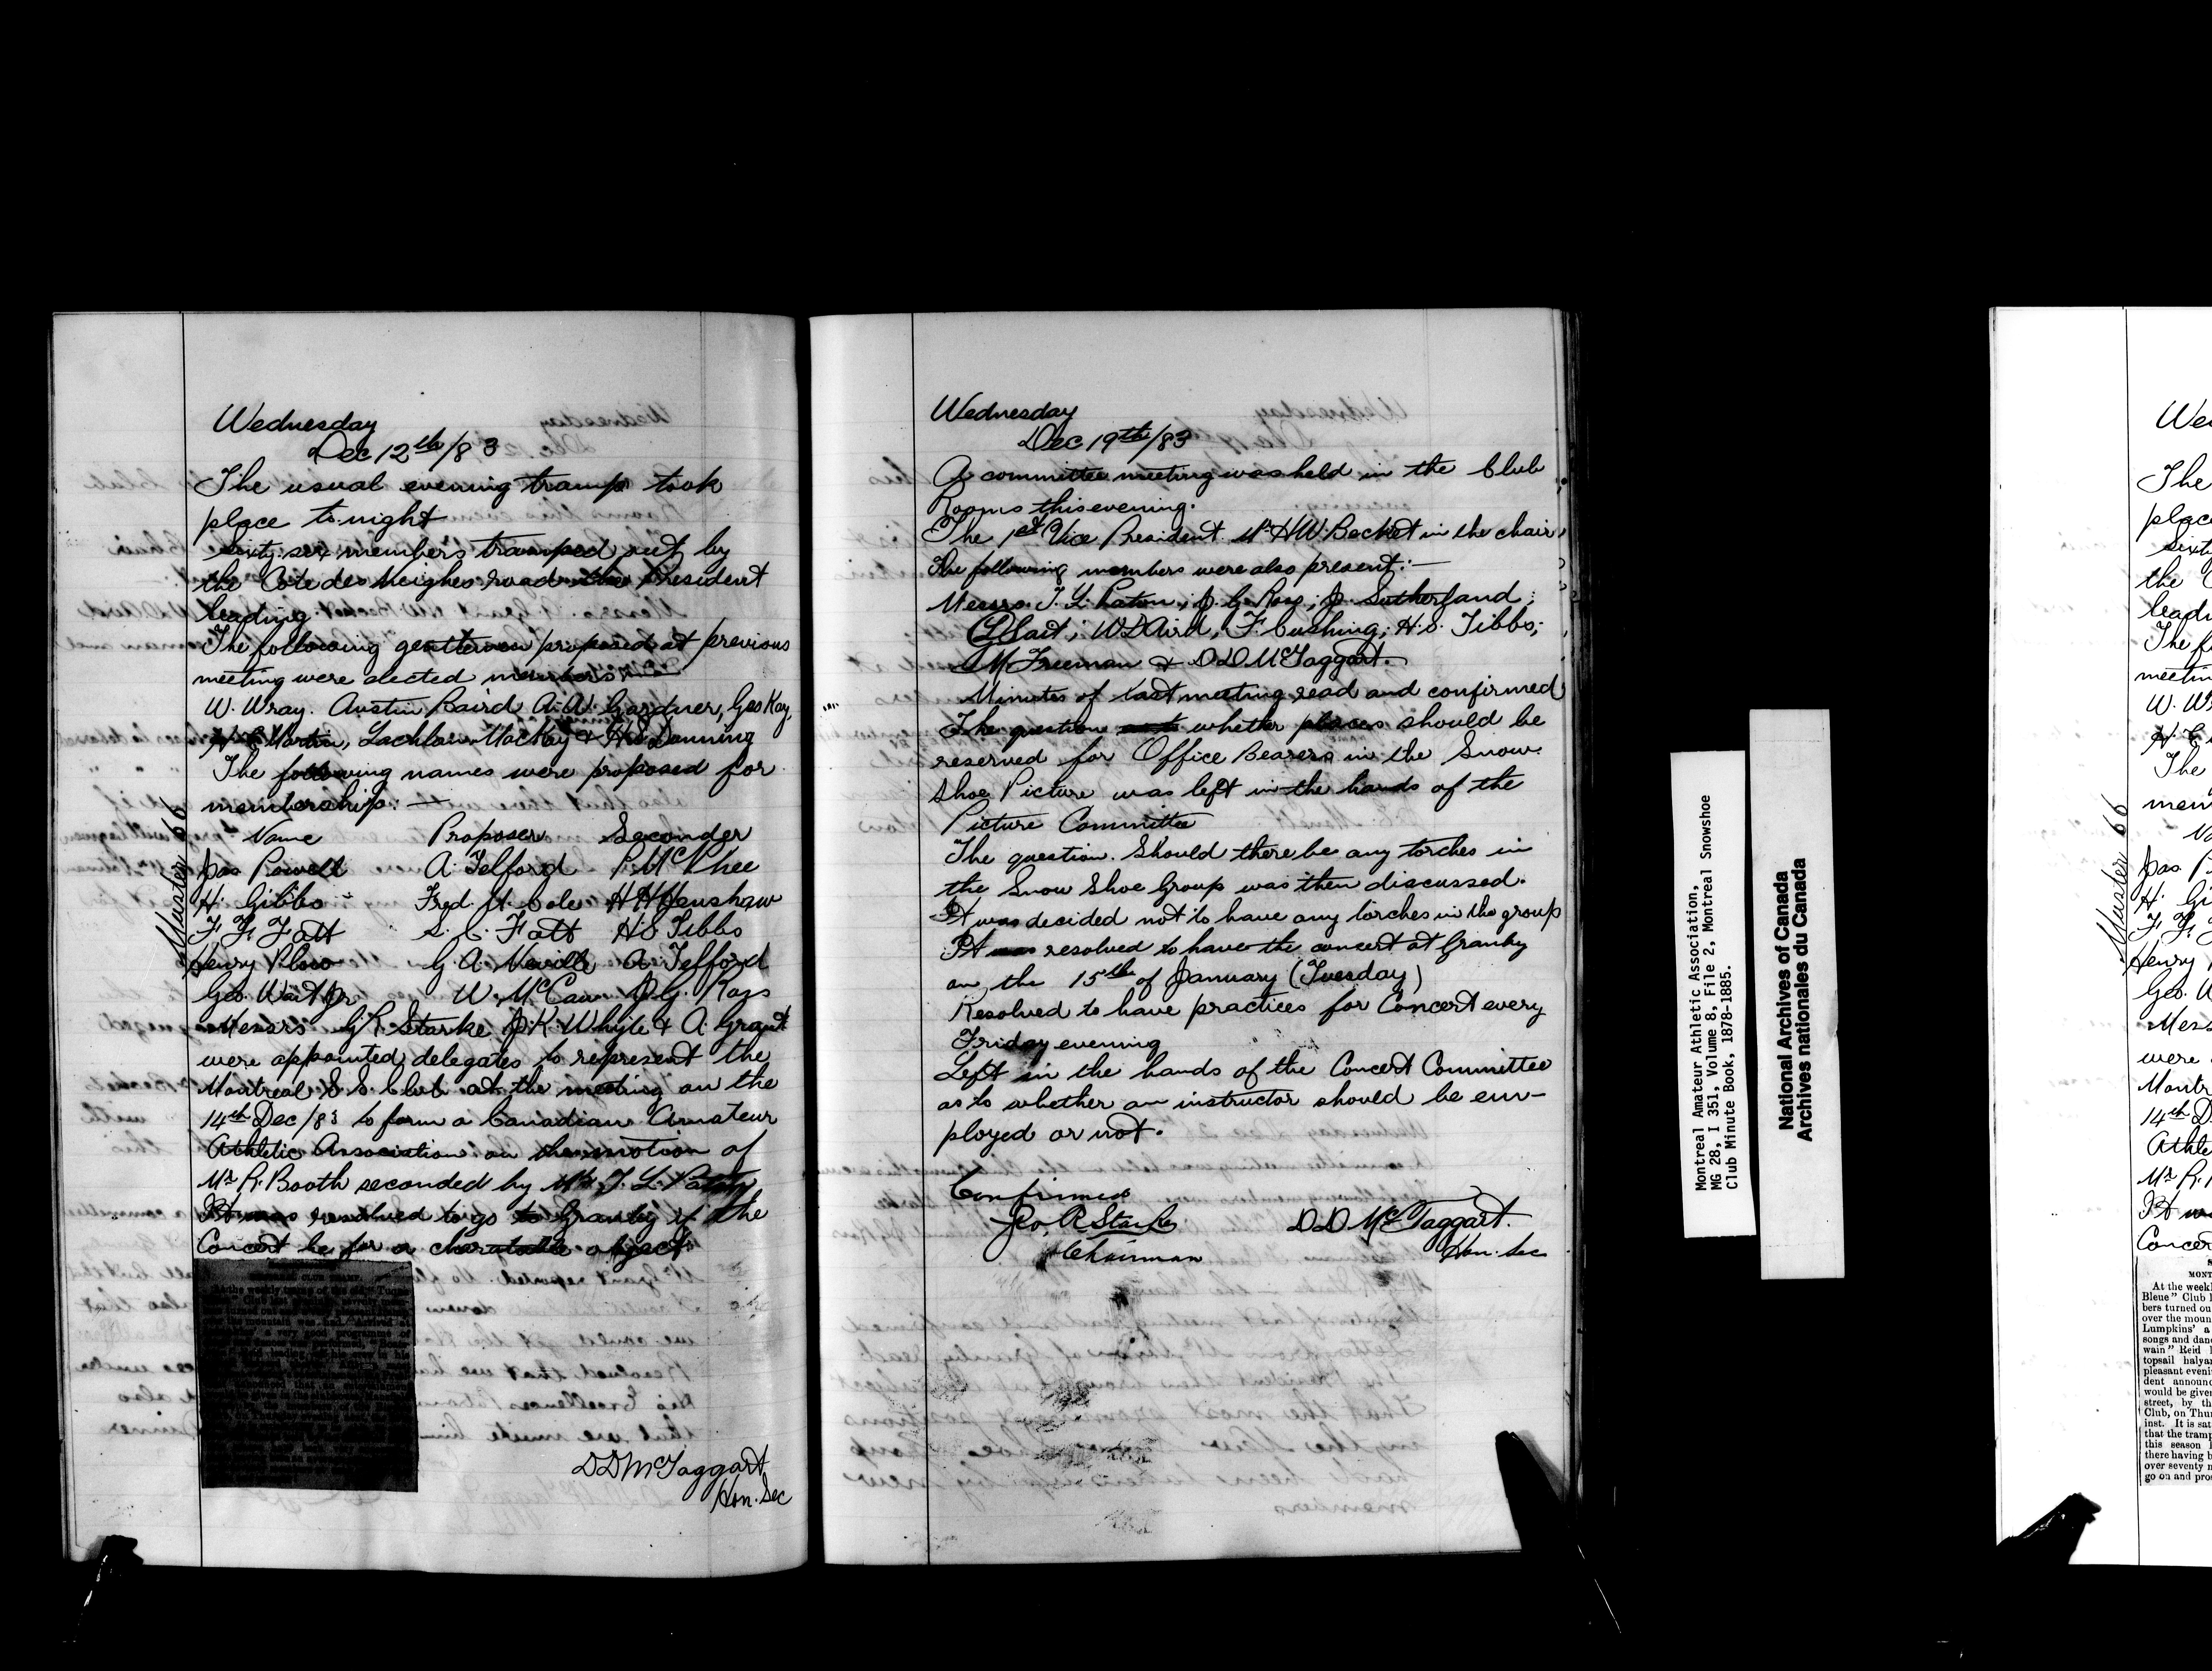 Wednesday
Dec 12th/83
The usual evening tramp took
place to-night
Sixty six members tramped out by
the Cote des Neighes road the President
leading
The following gentlemen proposed at previous
meeting were elected members
W. Wray. Austin Baird A. W. Gardner, Geo Kay,
H C Martin, Lachlan MacKay & H S Dunning
The following names were proposed for
membership: —
Name Proposer Seconder
Jas Powell A. Telford P. McPhee
H. Gibbs Fred. H. Cole H H Henshaw
F. F. Fatt S. C. Fatt H S Tibbs
Henry Plow G. A. A. Telford
Geo. Wait Jr W. McCaw J. G. Ross
Messrs G R. Starke J. K. Whyte & A. Grant
were appointed delegates to represent the
Montreal S. S. Club at the meeting on the
14th Dec/83 to form a Canadian Amateur
Athletic Association on the motion of
Mr R. Booth seconded by Mr T. L. Paton
It was resolved to go to Granby if the
Concert be for a charatable object
Muster 66
DD McTaggart
Hon. Sec
Wednesday
Dec 19th/83
A committee meeting was held in the Club
Rooms this evening.
The 1st Vice President Mr H W Becket in the chair
The following members were also present: —
Messrs. T. L. Paton; J. G. Ross; J. Sutherland;
W D Aird, F. Cushing; H. S. Tibbs;
M Freeman & D D McTaggart.
Minutes of last meeting read and confirmed
The question whether places should be
reserved for Office Bearers in the Snow-
Shoe Picture was left in the hands of the
Picture Committee
The question. Should there be any torches in
the Snow Shoe Group was then discussed.
It was decided not to have any torches in the group
It was resolved to have the concert at Granby
on the 15th of January (Tuesday)
Resolved to have practices for Concert every
Friday evening
Left in the hands of the Concert Committee
as to whether an instructor should be em-
ployed or not.
Confirmed
Geo. R Starke
Chairman
D D McTaggart.
Hon. Sec
Montreal Amateur Athletic Association,
MG 28, I 351, Volume 8, File 2, Montreal Snowshoe
Club Minute Book, 1878-1885.
National Archives of Canada
Archives nationales du Canada
Muster 66
The
place
the
W. W
The
mem
H. Gi
F. F.
Henry
Geo. W
Mess
were
Montr
14th D
Athle
Mr R.
Concer
MONT
At the week
Bleue" Club
bers turned ou
over the moun
Lumpkins' a
songs and danc
wain" Reid
topsail halyar
pleasant eveni
dent announc
would be given
street, by th
Club, on Thur
inst. It is sat
that the tramp
this season
there having b
over seventy m
go on and pro